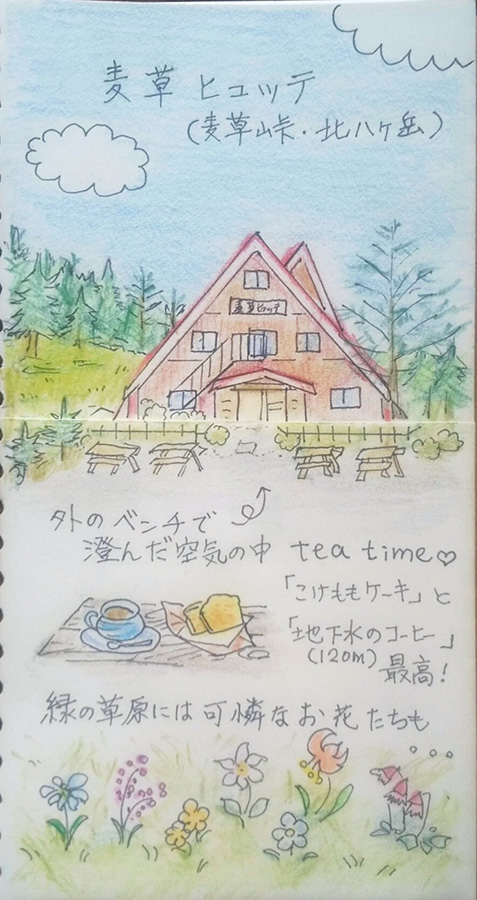 麦草ヒュッテ
(麦草峠・北八ヶ岳)
麦草ヒュッテ
外のベンチで
澄んだ空気の中 tea time♡
「こけももケーキ」と
「地下水のコーヒー」
(120m) 最高!
緑の草原には可憐なお花たちも